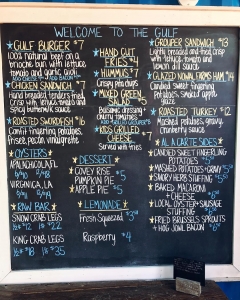 WELCOME TO THE GULF
GULF BURGER $7
100% natural beef on a
brioche bun with lettuce
tomato and garlic aioli
ADD BACON
CHICKEN SANDWICH $7
Hand breaded tenders fried
crisp with lettuce tomato and
spicy buttermilk sauce
ROASTED SWORDFISH $16
Confit fingerling potatoes,
frisee, pecan vinaigrette
OYSTERS
VIRGINICA, LA
RAW BAR
SNOW CRAB LEGS
KING CRAB LEGS
HAND CUT
FRIES $4
HUMMUS $7
Crispy pita chips
MIXED GREEN
SALAD $5
Balsamic dressing
cherry tomatoes
KIDS GRILLED
CHEESE
Served with fries
DESSERT
COVEY RISE
PUMPKIN PIE
APPLE PIE $5
LEMONADE
Fresh Squeezed $3
Raspberry $4
GROUPER SANDWICH $13
Lightly breaded and fried crisp
with lettuce tomato and
lemon dill sauce
GLAZED NOVA FARMS HAM $14
Candied sweet fingerling
potatoes, Smoked apple
glaze
ROASTED TURKEY $12
Mashed potatoes, gravy,
Cranberry sauce
A LA CARTE SIDES
CANDIED SWEET FINGERLING
POTATOES $5
MASHED POTATOES & GRAVY $5
SAVORY HERB STUFFING $5
BAKED MACARONI
& CHEESE $6
LOCAL OYSTER & SAUSAGE
STUFFING
FRIED BRUSSELS SPROUTS
& HOG JOWL BACON $6